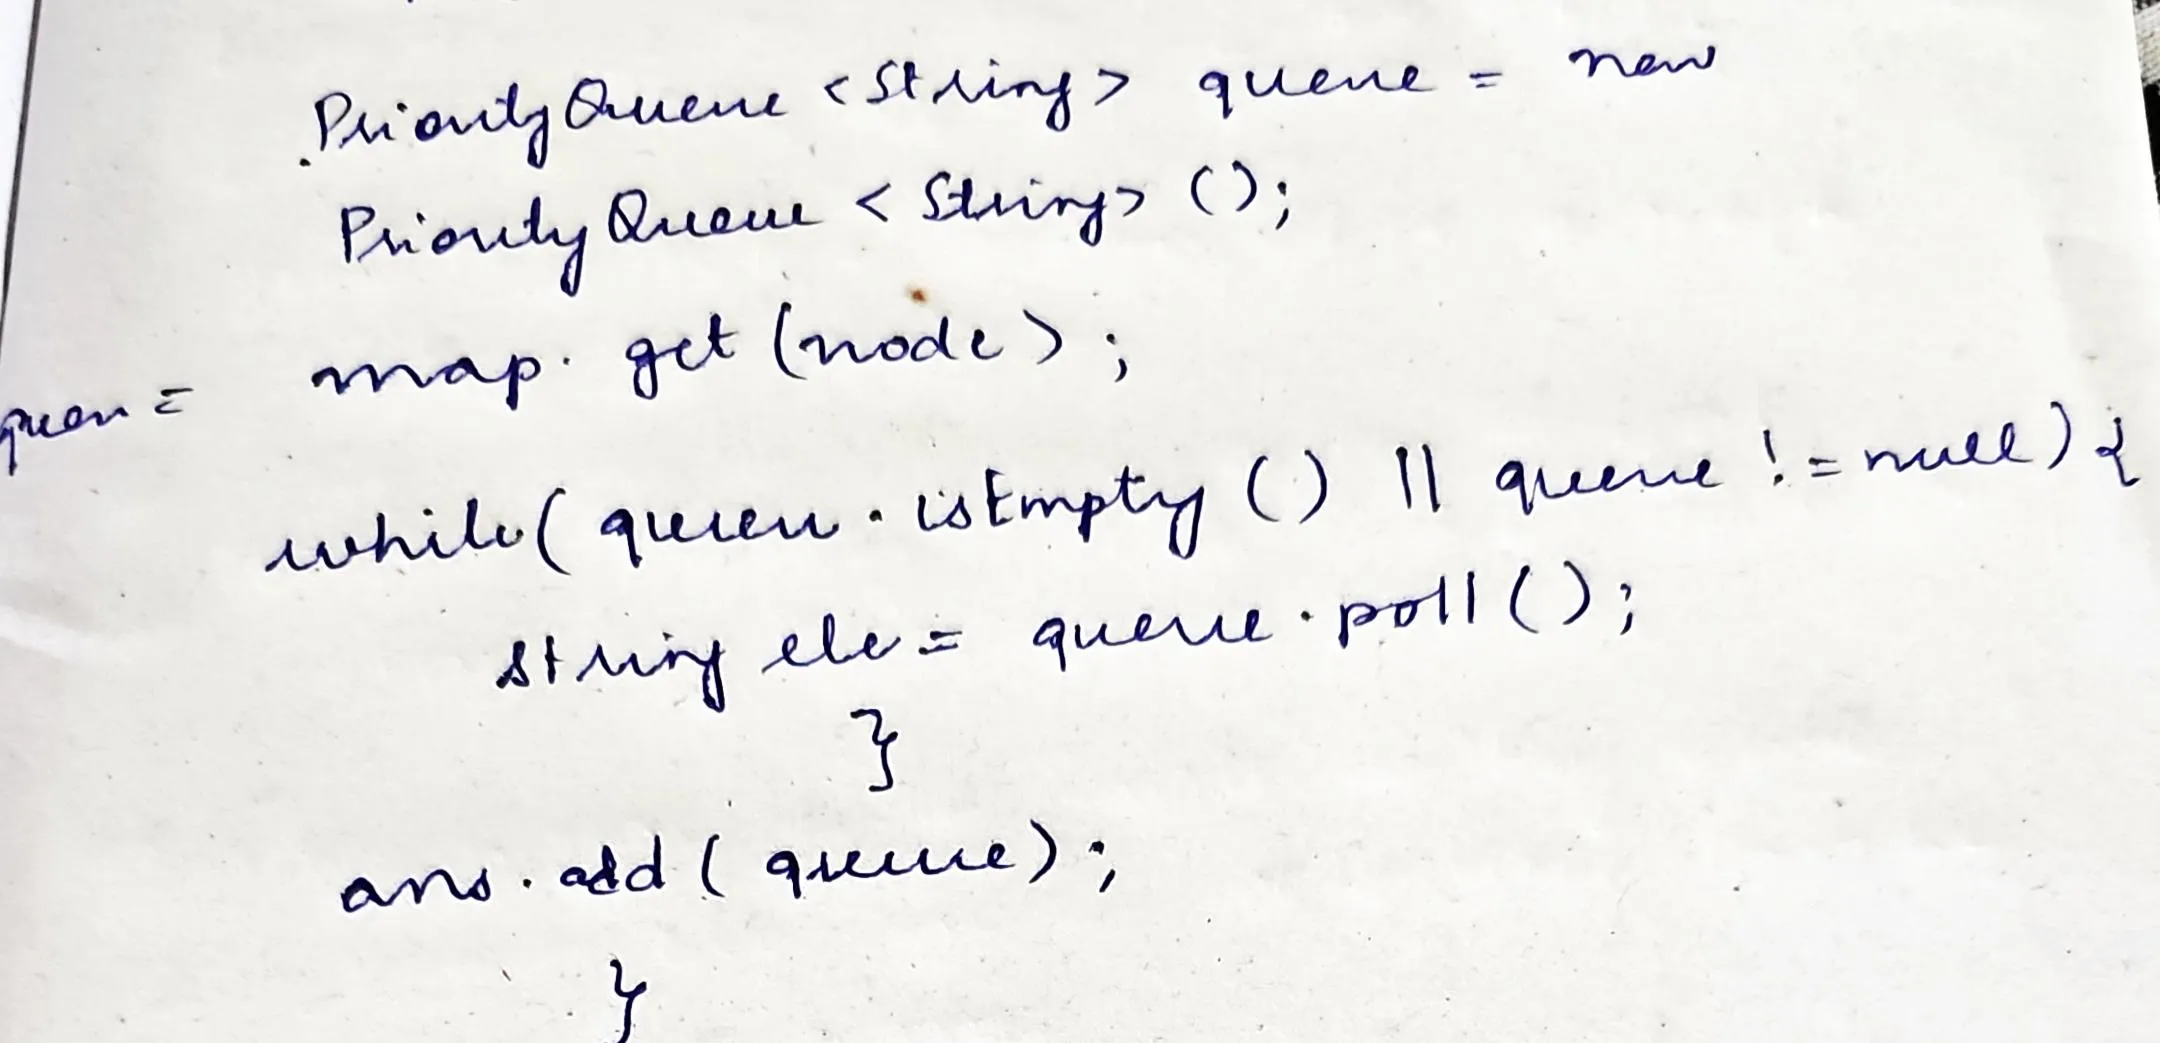 PriorityQueue <String> queue = new
PriorityQueue < String> ();
queue = map. get (node);
while( queue . isEmpty () || queue != null) {
String ele = queue . poll ();
}
ans . add ( queue);
}